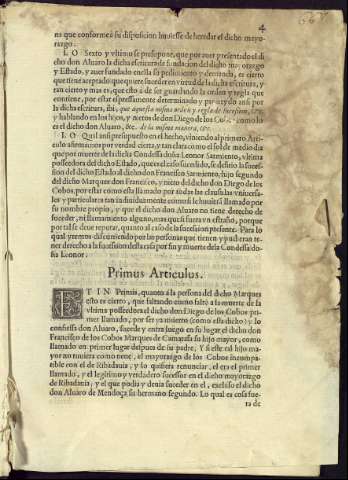 4
ns que conforme a su disposicion huuiesse de heredar el dicho mayo-
razgo.
LO Sexto y vltimo se presupone, que por auer presentado el di
cho don Aluaro la dicha escritura de fundacion del dicho mayorazgo
y Estado, y auer fundado en ella su pedimiento y demanda, es cierto
que tiene aceptado quiere ser don en virtud de la dicha escritura, y
tan cierto y mas es, que esto a de ser guardando la orden y regla que
contiene, por estar expressamente determinado y proueydo assi por
la dicha escritura, ibi, que aquesta misma orden y regla de sucession, &c.
y hablando en los hijos, y nietos de don Diego de los Cobos como lo
es el dicho don Aluaro, &c. de la misma manera, &c.
LO Qual assi presupuesto en el hecho, viniendo al primero Arti-
culo afirmamos por verdad cierta, y tan clara como el sol de medio dia
que por muerte de la dicha Condessa doña Leonor Sarmiento, vltima
possedora del dicho Estado, que vel a el de su sucession, se defirio la suces-
sion del dicho Estado al dicho don Francisco Sarmiento, hijo segundo
del dicho Marques don Francisco, y nieto del dicho don Diego de los
Cobos, por estar como esta llamado por todas las clausulas vniuersa-
les y particulares tan indiuiduamente como si le huuiera llamado por
su nombre proprio, y que el dicho don Aluaro no tiene derecho de
suceder, ni llamamiento alguno, mas que si fuera vn estraño, porque
por tal se deue reputar, quanto al caso de la sucession presente. Para lo
qual yremos discurriendo por las personas que tienen y pudieran te-
ner derecho a la sucession desta casa por fin y muerte de la Condesa do-
ña Leonor.
Primus Articulus.
ET IN Primis, quanto á la persona del dicho Marques
esto es cierto, que faltando como faltò a la muerte de la
vltima possedora el dicho don Diego de los Cobos pri-
mer llamado, por ser ya muerto (como esta dicho) y lo
confiessa don Aluaro, sucede y entra luego en su lugar el dicho don
Francisco de los Cobos Marques de Camarasa su hijo mayor, como
llamado en primer lugar despues de su padre, Y si este tal hijo ma-
yor no tuuiera como tiene, el mayorazgo de los Cobos incompati-
ble con el de Ribadauia, y lo quisiera renunciar, el era el primer
llamado, y el legitimo y verdadero sucessor en el dicho mayorazgo
de Ribadauia, y el que podia y deuia suceder en el, excluso el dicho
don Aluaro de Mendoça su hermano segundo. Lo qual es cosa fue-
ra de